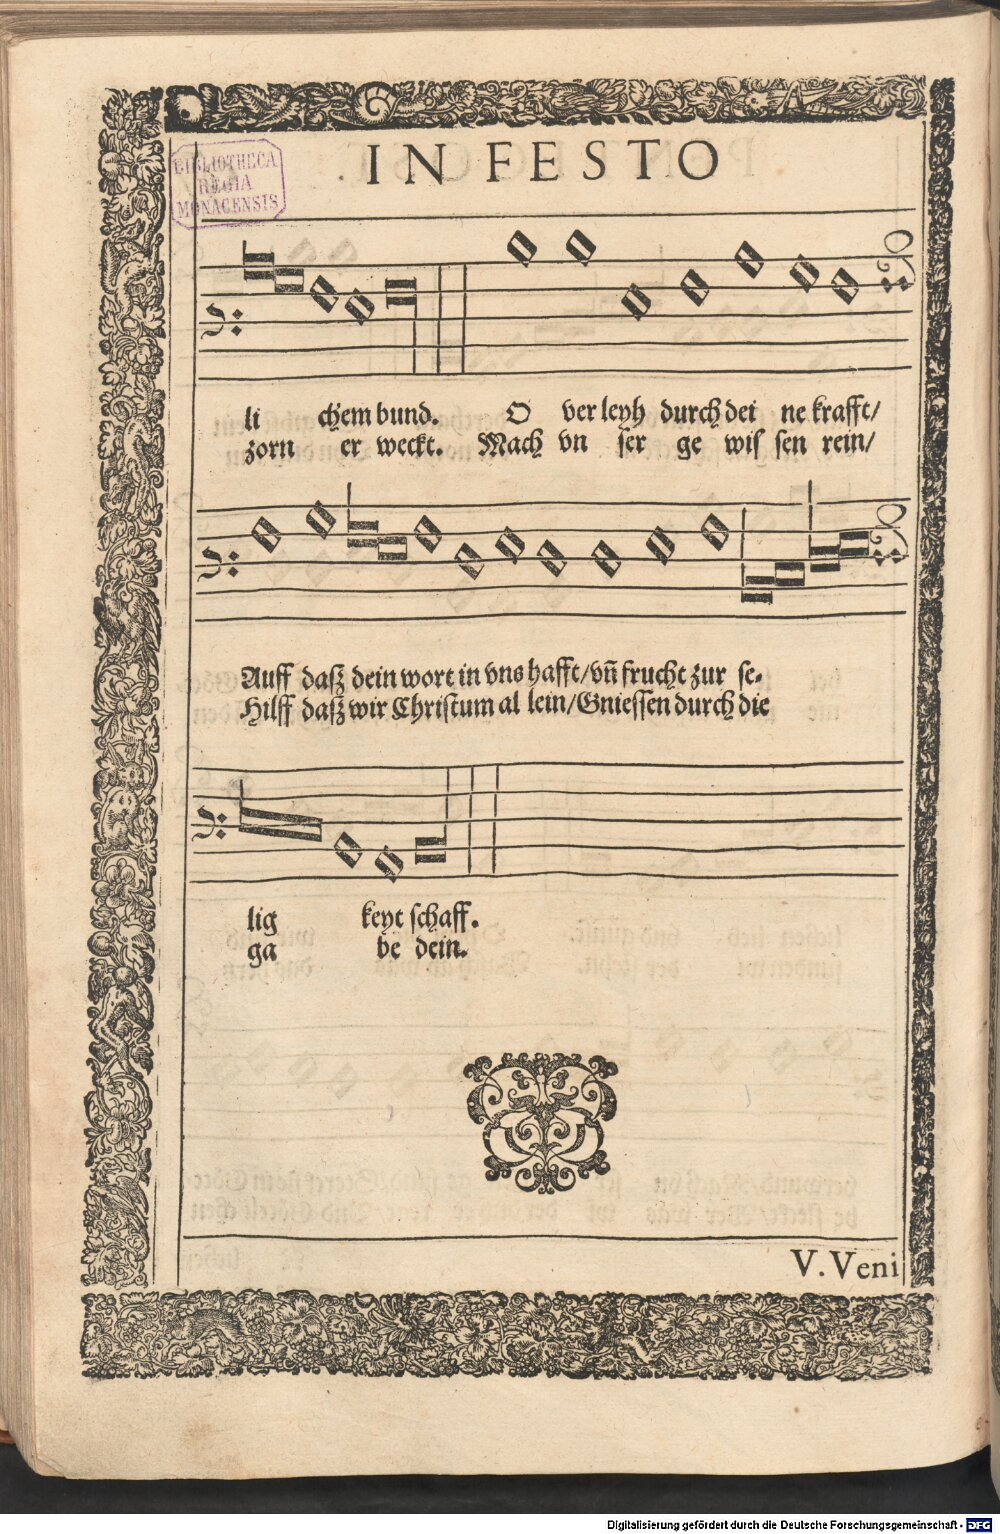 IN FESTO
BIBLIOTHECA
REGIA
MONACENSIS
li chem bund. O ver leyh durch dei ne krafft/
zorn er weckt. Mach vn ser ge wis sen rein/
Auff dasz dein wort in vns hafft/vn̄ frucht zur se-
Hilff dasz wir Christum al lein/Gniessen durch die
lig keyt schaff.
ga be dein.
V. Veni
Digitalisierung gefördert durch die Deutsche Forschungsgemeinschaft - DFG